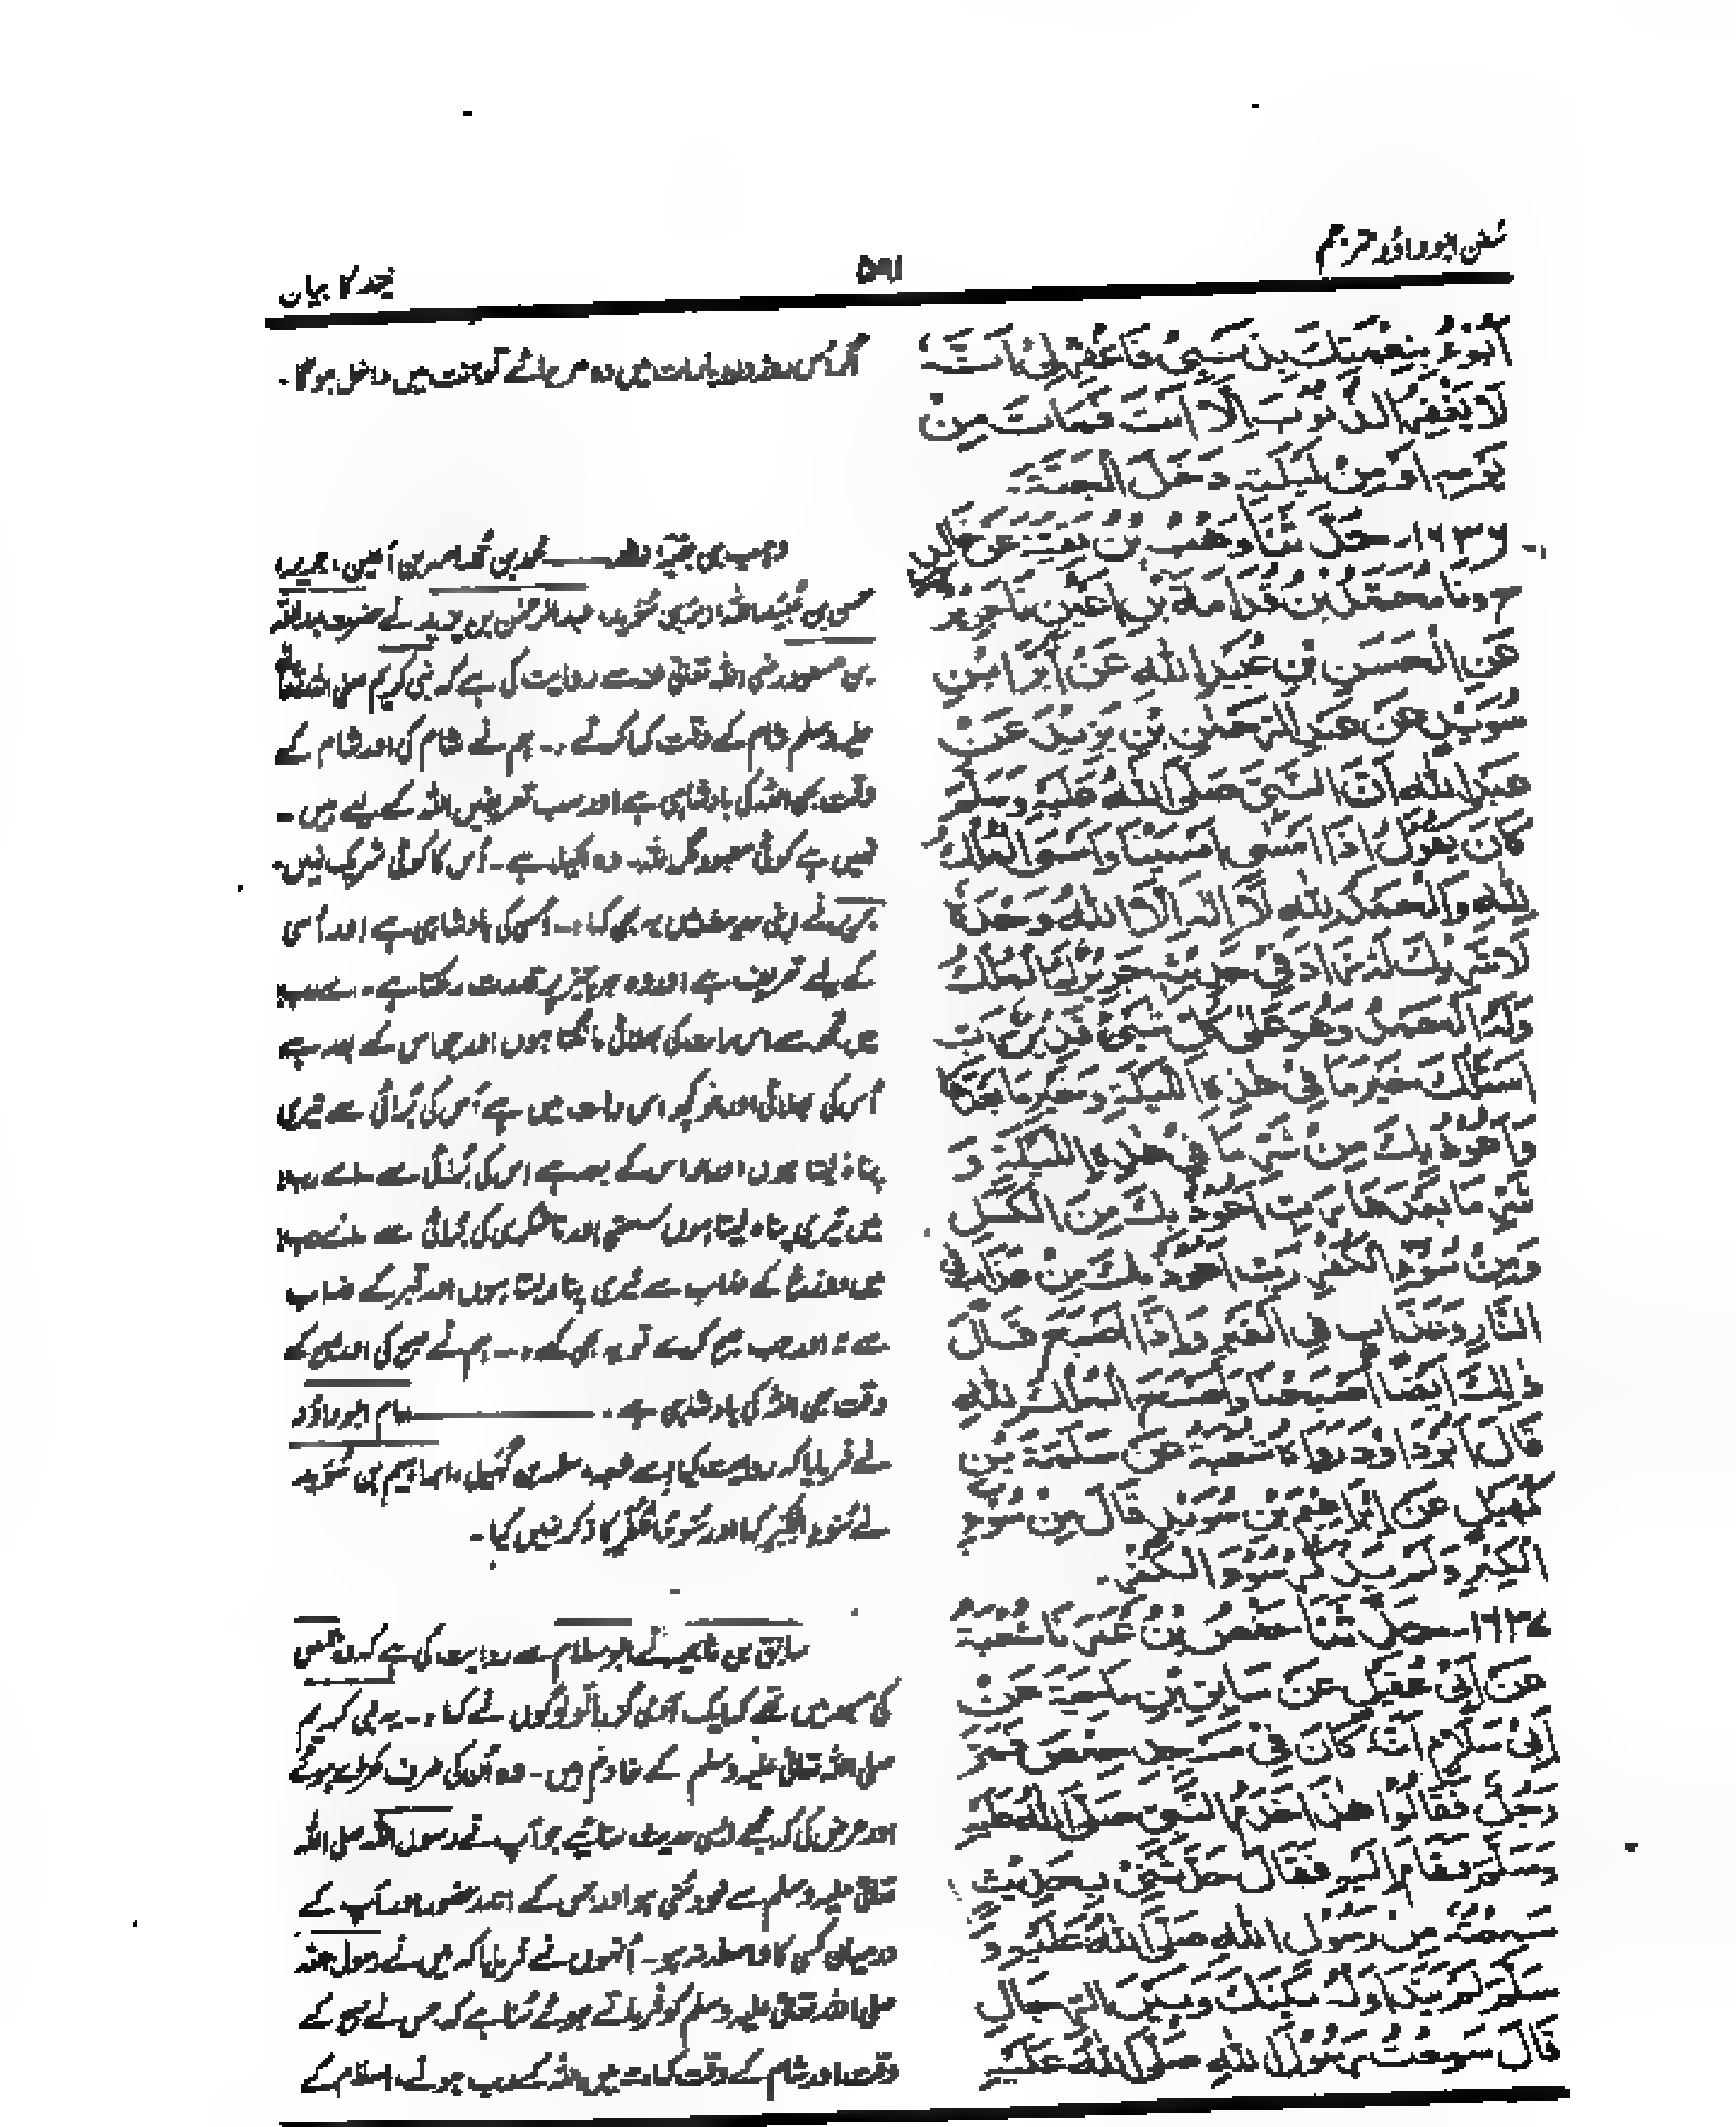 سنن ابوداؤد مترجم
۵۹۱
نیند کا بیان
اَبُوْءُ بِنِعْمَتِكَ بِذَنْۢبِیْ فَاغْفِرْ لِیْ اِنَّہٗ
لَا یَغْفِرُ الذُّنُوْبَ اِلَّا اَنْتَ فَمَاتَ مِنْ
یَوْمِہٖ اَوْ مِنْ لَیْلَتِہٖ دَخَلَ الْجَنَّۃَ۔
۱۶۳۶۔ حَدَّثَنَا وَھْبُ بْنُ بَقِیَّۃَ عَنْ خَالِدٍ
ح وَنَا مُحَمَّدُ بْنُ قُدَامَۃَ بْنِ اَعْیَنَ نَا جَرِیْرٌ
عَنِ الْحَسَنِ بْنِ عُبَیْدِ اللّٰہِ عَنْ اِبْرَاہِیْمَ بْنِ
سُوَیْدٍ عَنْ عَبْدِ الرَّحْمٰنِ بْنِ یَزِیْدَ عَنْ
عَبْدِ اللّٰہِ اَنَّ النَّبِیَّ صَلَّی اللّٰہُ عَلَیْہِ وَسَلَّمَ
کَانَ یَقُوْلُ اِذَا اَمْسٰی اَمْسَیْنَا وَاَمْسَی الْمُلْكُ
لِلّٰہِ وَالْحَمْدُ لِلّٰہِ لَا اِلٰہَ اِلَّا اللّٰہُ وَحْدَہٗ
لَا شَرِیْكَ لَہٗ زَادَ فِیْ حَدِیْثِ جَرِیْرٍ لَہُ الْمُلْكُ
وَلَہُ الْحَمْدُ وَھُوَ عَلٰی کُلِّ شَیْءٍ قَدِیْرٌ رَبِّ
اَسْئَلُكَ خَیْرَ مَا فِیْ ھٰذِہِ اللَّیْلَۃِ وَخَیْرَ مَا بَعْدَھَا
وَاَعُوْذُ بِكَ مِنْ شَرِّ مَا فِیْ ھٰذِہِ اللَّیْلَۃِ وَ
شَرِّ مَا بَعْدَھَا رَبِّ اَعُوْذُ بِكَ مِنَ الْکَسَلِ
وَمِنْ سُوْءِ الْکُفْرِ رَبِّ اَعُوْذُ بِكَ مِنْ عَذَابٍ فِی
النَّارِ وَعَذَابٍ فِی الْقَبْرِ وَاِذَا اَصْبَحَ قَالَ
ذٰلِكَ اَیْضًا اَصْبَحْنَا وَاَصْبَحَ الْمُلْكُ لِلّٰہِ
قَالَ اَبُوْدَاؤدَ رَوَاہُ شُعْبَۃُ عَنْ سَلَمَۃَ بْنِ
کُھَیْلٍ عَنْ اِبْرَاہِیْمَ بْنِ سُوَیْدٍ قَالَ مِنْ سُوْءِ
الْکِبَرِ وَلَمْ یَذْکُرْ سُوْءَ الْکُفْرِ۔
۱۶۳۷۔ حَدَّثَنَا حَفْصُ بْنُ عُمَرَ نَا شُعْبَۃُ
عَنْ اَبِیْ عَقِیْلٍ عَنْ سَابِقِ بْنِ نَاجِیَۃَ عَنْ
اَبِیْ سَلَّامٍ اَنَّہٗ کَانَ فِیْ مَسْجِدِ حِمْصَ فَمَرَّ
رَجُلٌ فَقَالُوْا ھٰذَا خَدَمَ النَّبِیَّ صَلَّی اللّٰہُ عَلَیْہِ
وَسَلَّمَ فَقَامَ اِلَیْہِ فَقَالَ حَدِّثْنِیْ بِحَدِیْثٍ
سَمِعْتَہٗ مِنْ رَسُوْلِ اللّٰہِ صَلَّی اللّٰہُ عَلَیْہِ وَ
سَلَّمَ لَمْ یَتَدَاوَلْہُ بَیْنَكَ وَبَیْنَہُ الرِّجَالُ
قَالَ سَمِعْتُ رَسُوْلَ اللّٰہِ صَلَّی اللّٰہُ عَلَیْہِ
اگر اُس روز دن یا رات میں وہ مر جائے تو جنت میں داخل ہوگا۔
وہب بن بقیہ، خالد ـــ محمد بن قدامہ بن اَعین، جریر،
حسن بن عُبیداللہ، ابراہیم بن سُوید، عبدالرحمٰن بن یزید نے حضرت عبداللہ
بن مسعود رضی اللہ تعالیٰ عنہ سے روایت کی ہے کہ نبی کریم صلی اللہ تعالیٰ
علیہ وسلم شام کے وقت کہا کرتے :۔ ہم نے شام کی اور شام کے
وقت بھی اللہ کی بادشاہی ہے اور سب تعریفیں اللہ کے لیے ہیں۔
نہیں ہے کوئی معبود مگر اللہ۔ وہ اکیلا ہے۔ اُس کا کوئی شریک نہیں۔
جریر نے اپنی حدیث میں یہ بھی کہا :۔ اُسی کی بادشاہی ہے اور اُسی
کے لیے تعریف ہے اور وہ ہر چیز پر قدرت رکھتا ہے۔ اے رب!
میں تجھ سے اس رات کی بھلائی مانگتا ہوں اور جو اس کے بعد ہے
اُس کی بھلائی اور جو کچھ اس رات میں ہے اُس کی بُرائی سے تیری
پناہ لیتا ہوں اور جو اس کے بعد ہے اس کی بُرائی سے۔ اے رب!
میں تیری پناہ لیتا ہوں سستی اور ناشکری کی بُرائی سے۔ اے رب!
میں دوزخ کے عذاب سے تیری پناہ لیتا ہوں اور قبر کے عذاب
سے۔ اور جب صبح کرے تو یہ بھی کہے :۔ ہم نے صبح کی اور صبح کے
وقت بھی اللہ کی بادشاہی ہے۔ ـــ امام ابو داؤد
نے فرمایا کہ روایت کیا اسے شعبہ، سلمہ بن کُہیل، ابراہیم بن سُوید
نے سُوءِ الکِبَر کہا اور سُوءِ الکُفر کا ذکر نہیں کیا۔
سابق بن ناجیہ نے ابو سلام سے روایت کی ہے کہ وہ حمص
کی مسجد میں تھے کہ ایک آدمی گزرا تو لوگوں نے کہا :۔ یہ نبی کریم
صلی اللہ تعالیٰ علیہ وسلم کے خادم ہیں۔ وہ اُن کی طرف کھڑے ہوئے
اور عرض کی کہ مجھے ایسی حدیث سنائیے جو آپ نے رسول اللہ صلی اللہ
تعالیٰ علیہ وسلم سے خود سُنی ہو اور جس کے اندر حضور اور آپ کے
درمیان کسی کا واسطہ نہ ہو۔ اُنہوں نے فرمایا کہ میں نے رسول اللہ
صلی اللہ تعالیٰ علیہ وسلم کو فرماتے ہوئے سُنا ہے کہ جس نے صبح کے
وقت اور شام کے وقت کہا ہے میں اللہ کے رب ہونے، اسلام کے